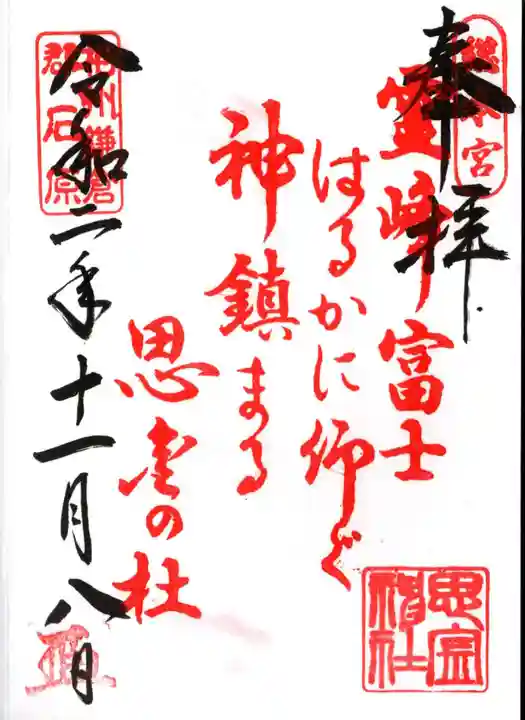 奉拝
總本宮
靈峰富士
はるかに仰ぐ
神鎮まる
思金の杜
令和二年十一月八日
相州鎌倉
郡石原
思金
神社